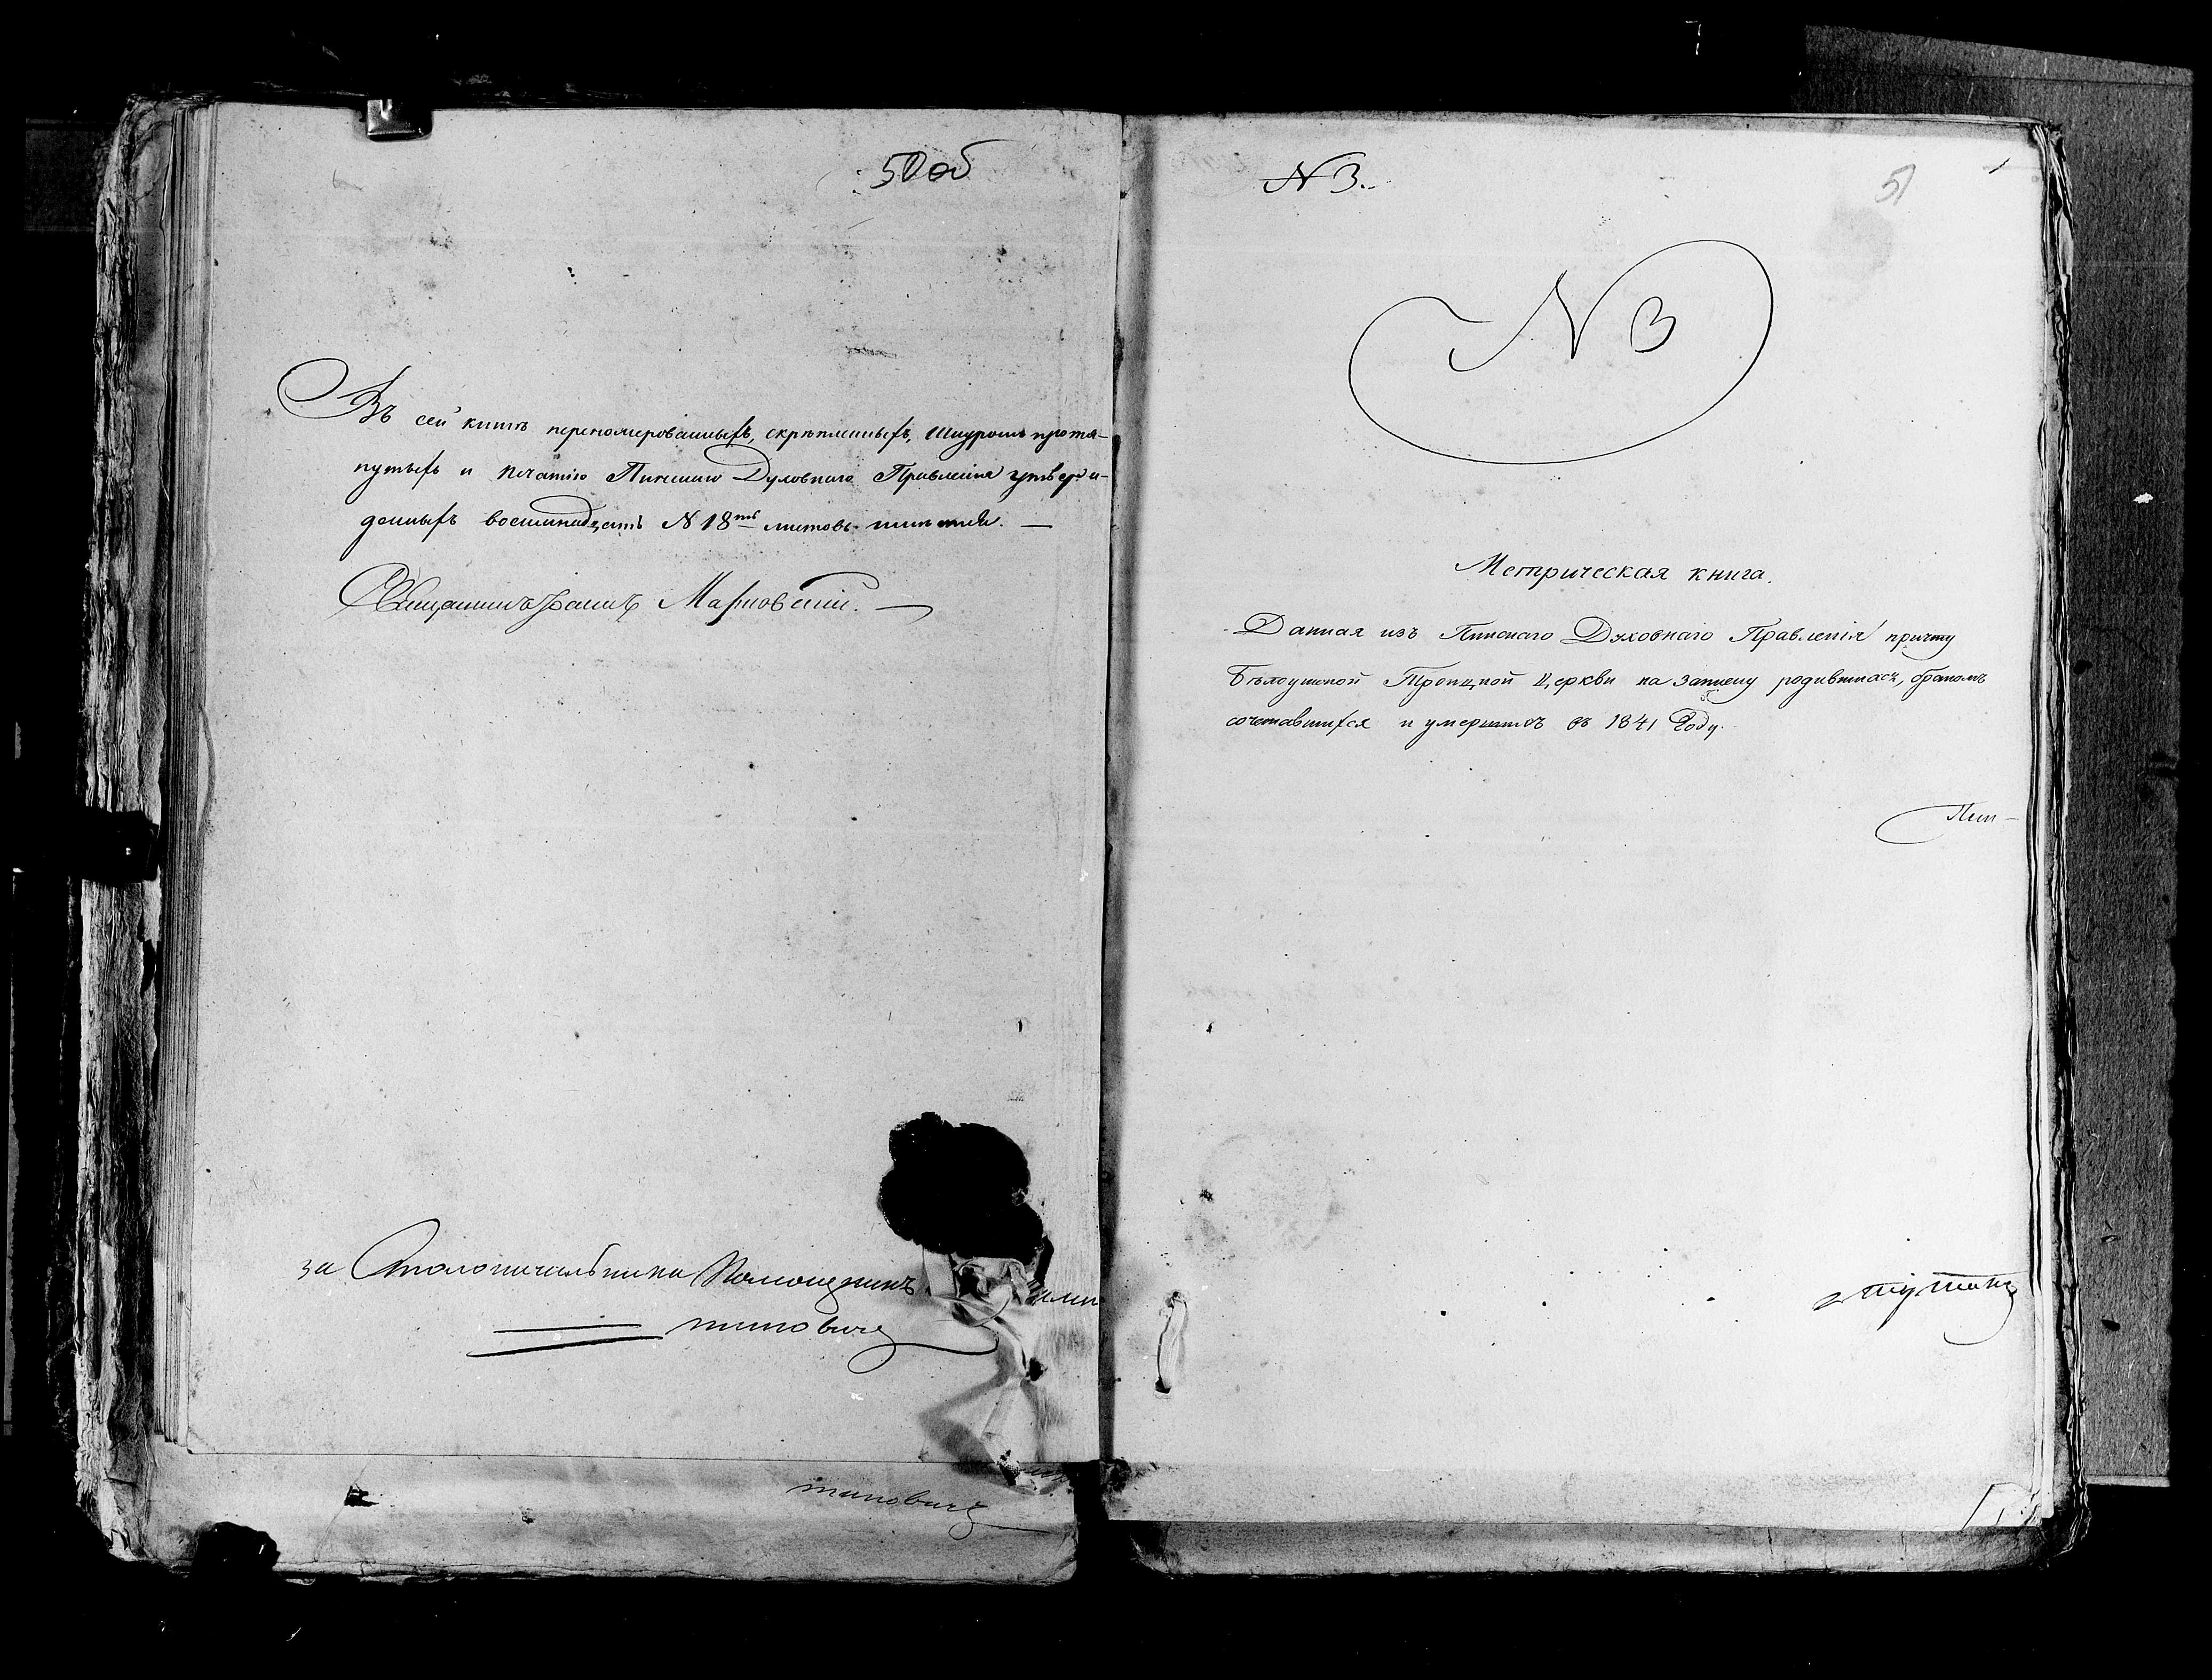 50об
Въ сей книгѣ перенომерованныхъ, скрѣпленныхъ, шнуромъ протя-
нутыхъ и печатію Пинскаго Духовнаго Правленія утверж-
денныхъ восемнадцать N 18ть листовъ
Священникъ Маршовскій.
за Столоначальника Помощникъ
N 3.
51
1
N 3
Метрическая книга.
Данная изъ Пинскаго Духовнаго Правленія причту
Бѣлоушской Троицкой Церкви на записку родившихся, бракомъ
сочетавшихся и умершихъ въ 1841 Году.
Пин-